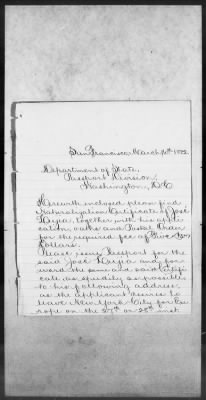 San Francisco March 16th 1892.
Department of State,
Passport Division,
Washington, D.C.
Herewith inclosed please find
Naturalization Certificate of José
together with his appli-
cation, oaths and Postal Order
for the required fee of
Dollars.
Please issue Passport for the
said José and for-
ward the same and said Certifi-
cate as speedily as possible
to his following address,
as the applicant desires to
leave New York City for Eu-
rope on the 27th or 28th inst.